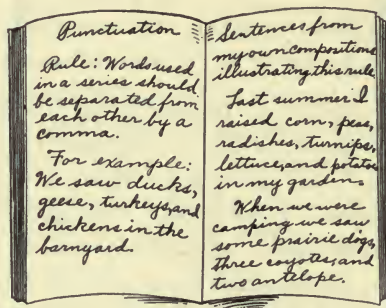 Punctuation
Rule: Words used
in a series should
be separated from
each other by a
comma.
For example:
We saw ducks,
geese, turkeys, and
chickens in the
barnyard.
Sentences from
my own compositions
illustrating this rule
Last summer I
raised corn, peas,
radishes, turnips,
lettuce, and potatoes
in my garden.
When we were
camping we saw
some prairie dogs,
three coyotes, and
two antelope.